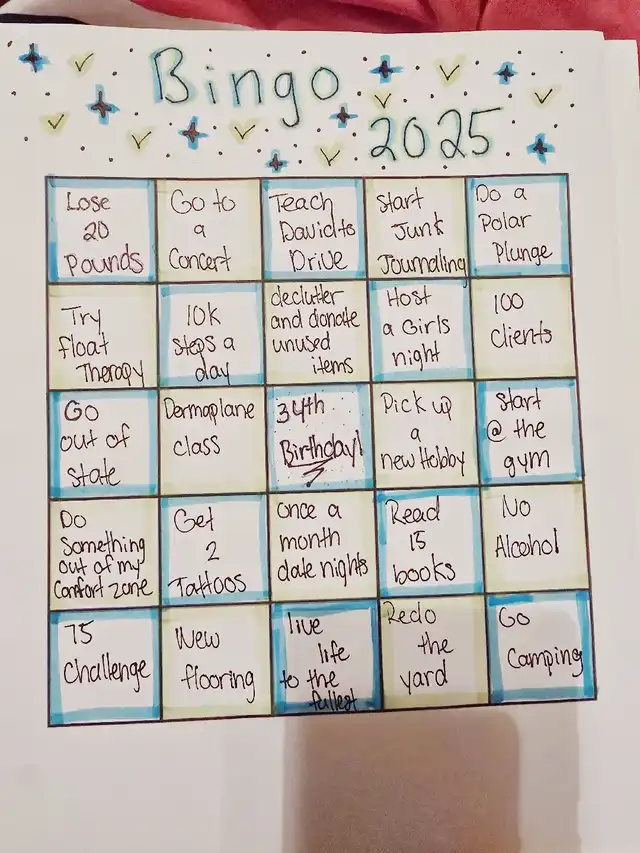 Bingo
2025
Lose
20
Pounds
Go to
a
Concert
Teach
David to
Drive
Start
Junk
Journaling
Do a
Polar
Plunge
Try
float
Therapy
10K
steps a
day
declutter
and donate
unused
items
Host
a Girls
night
100
Clients
Go
out of
state
Dermaplane
class
34th
Birthday!
Pick up
a
new Hobby
Start
@ the
gym
Do
Something
out of my
Comfort zone
Get
2
Tattoos
once a
month
date nights
Read
15
books
No
Alcohol
75
Challenge
New
flooring
live
life
to the
fullest
Redo
the
yard
Go
Camping